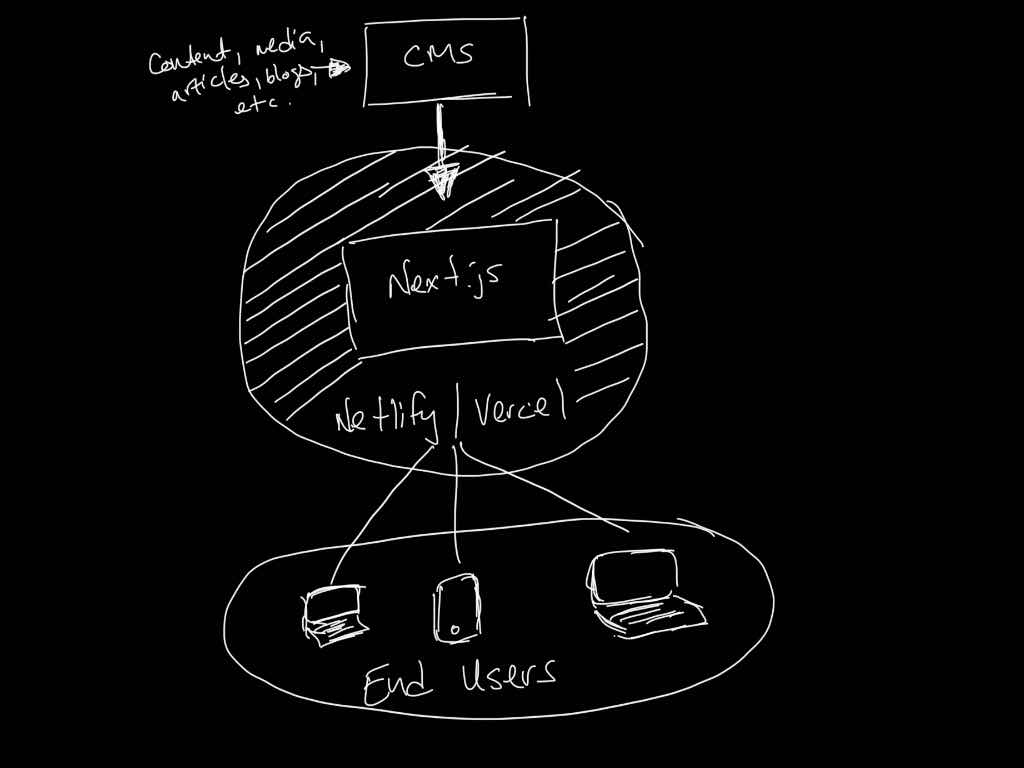 Content, media,
articles, blogs,
etc.
CMS
Next.js
Netlify | Vercel
End Users